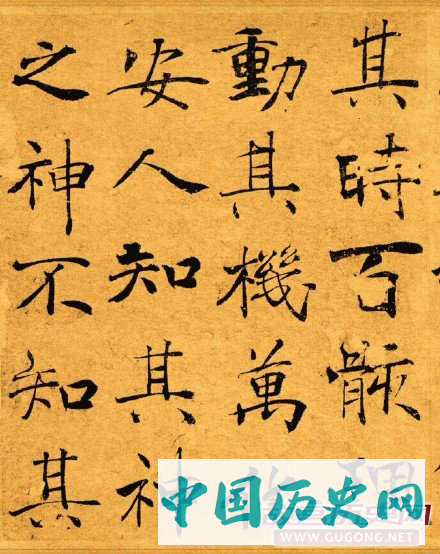 其時百骸理
動其機萬化
安人知其神
之神不知其
中国历史网
WWW.GUGONG.NET